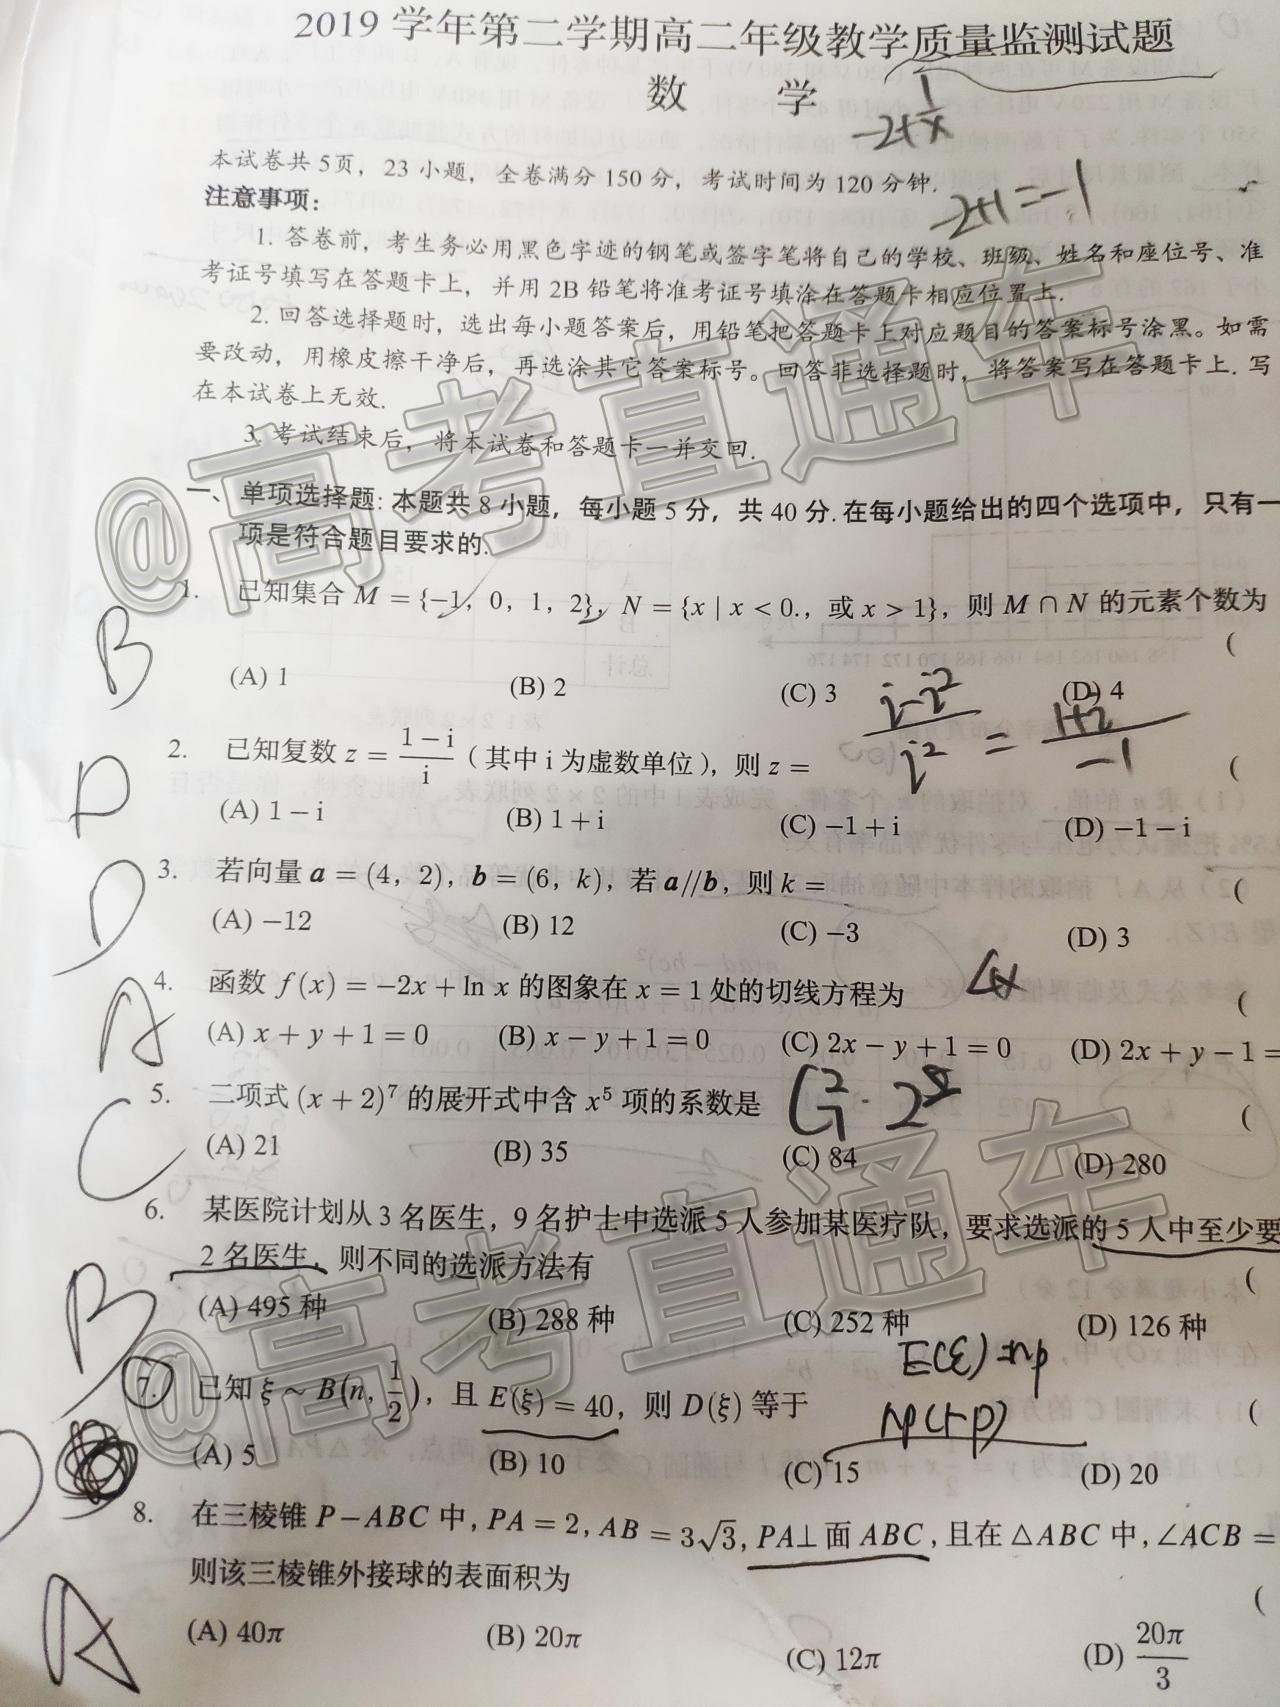 2019 学年第二学期高二年级教学质量监测试题
数 学
1/x
-2+
本试卷共 5 页，23 小题，全卷满分 150 分，考试时间为 120 分钟.
-2+1=-1
注意事项：
1. 答卷前，考生务必用黑色字迹的钢笔或签字笔将自己的学校、班级、姓名和座位号、准
考证号填写在答题卡上，并用 2B 铅笔将准考证号填涂在答题卡相应位置上.
2. 回答选择题时，选出每小题答案后，用铅笔把答题卡上对应题目的答案标号涂黑。如需
要改动，用橡皮擦干净后，再选涂其它答案标号。回答非选择题时，将答案写在答题卡上. 写
在本试卷上无效.
3. 考试结束后，将本试卷和答题卡一并交回.
@高考直通车
一、单项选择题: 本题共 8 小题，每小题 5 分，共 40 分. 在每小题给出的四个选项中，只有一
项是符合题目要求的.
1. 已知集合 M = {−1, 0, 1, 2}, N = {x | x < 0., 或 x > 1}, 则 M ∩ N 的元素个数为
(
B
(A) 1 (B) 2 (C) 3 (D) 4
i-i²/i² = 1+i/-1
2. 已知复数 z = (1−i)/i (其中 i 为虚数单位), 则 z = (
D
(A) 1 − i (B) 1 + i (C) −1 + i (D) −1 − i
3. 若向量 a = (4, 2), b = (6, k), 若 a//b, 则 k = (
D
(A) −12 (B) 12 (C) −3 (D) 3
4. 函数 f(x) = −2x + ln x 的图象在 x = 1 处的切线方程为 (
A
(A) x + y + 1 = 0 (B) x − y + 1 = 0 (C) 2x − y + 1 = 0 (D) 2x + y − 1 =
5. 二项式 (x + 2)⁷ 的展开式中含 x⁵ 项的系数是 (
C
(A) 21 (B) 35 (C) 84 (D) 280
6. 某医院计划从 3 名医生，9 名护士中选派 5 人参加某医疗队，要求选派的 5 人中至少要
2 名医生，则不同的选派方法有 (
B
(A) 495 种 (B) 288 种 (C) 252 种 (D) 126 种
E(ξ)=np
7. 已知 ξ ~ B(n, 1/2), 且 E(ξ) = 40, 则 D(ξ) 等于 (
np(1-p)
@高考直通车
(A) 5 (B) 10 (C) 15 (D) 20
8. 在三棱锥 P−ABC 中, PA = 2, AB = 3√3, PA⊥面 ABC, 且在 △ABC 中, ∠ACB =
则该三棱锥外接球的表面积为
(
A
(A) 40π (B) 20π (C) 12π (D) 20π/3